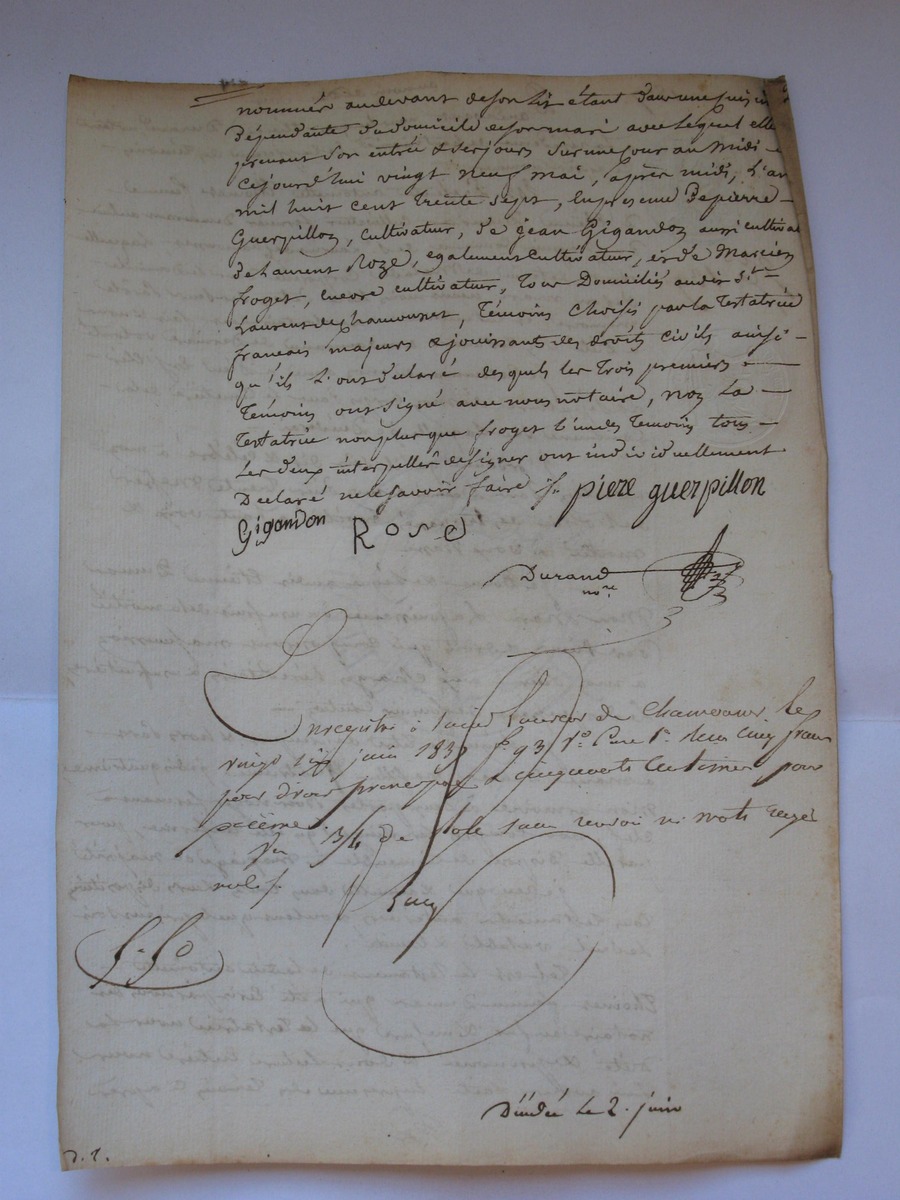 nommée audevant de son lit étant dans une pièce
Dépendante du domicile de son mari avec lequel elle
prenant son entrée & ses jours sur une cour au midi
Cejourd'hui vingt neuf mai, après midi, L'an
mil huit cent trente sept, En présence De pierre
Guerpillon, cultivateur, De jean Gigandon aussi cultivateur
De Laurent Roze, egalement cultivateur, et De Marcien
froget, encore cultivateur, Tous Domiciliés audit St
Laurent de Chamousset, Témoins choisis par la Testatrice
francais majeurs & jouissants des droits civils ainsi
qu'ils l'ont déclaré desquels les Trois premiers
Témoins ont signé avec nous notaire, non La
Testatrice non plus que froget l'un des Temoins tous
Les deux interpellés de signer ont individuellement
Declaré ne le savoir faire piere guerpillon
Gigandon Rose
Durand
nore
Enregistré à Saint Laurent de Chamousset le
juin 183 fo 93 Vo Case 1re Reçu cinq francs
pour droit principal & cinquante Centimes pour
décime.
3/4 De rôle sans renvoi ni mots rayés
nuls
Dindée Le 2. juin
D. 2.